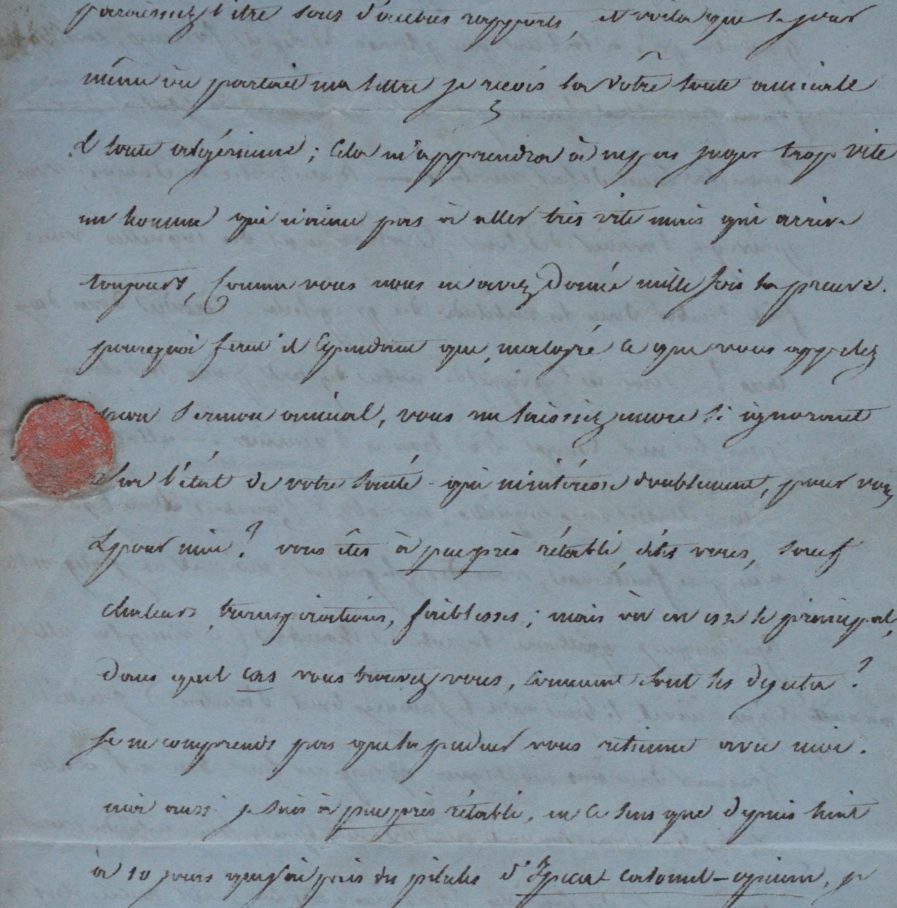 paraissez l'être sous d'autres rapports et voilà que le jour
même où partait ma lettre je reçois la vôtre toute amicale
& toute algérienne ; cela m'apprendra à ne pas juger trop vite
un homme qui n'aime pas à aller très vite mais qui arrive
toujours, comme vous nous en avez donné mille fois la preuve.
pourquoi faut il cependant que, malgré ce que vous appelez
mon sermon amical, vous me laissiez encore si ignorant
sur l'état de votre santé qui m'intéresse doublement, pour vous
& pour moi ? vous êtes à peu près rétabli, dites vous, sauf
chaleurs, transpirations, faiblesses ; mais où en est le principal,
dans quel cas vous trouvez vous, comment sont les
je ne comprends pas que la pudeur vous retienne avec moi.
moi aussi je suis à peu près rétabli, en ce sens que depuis huit
à 10 jours que j'ai pris des pilules d'Ipeca calomel-opium, je